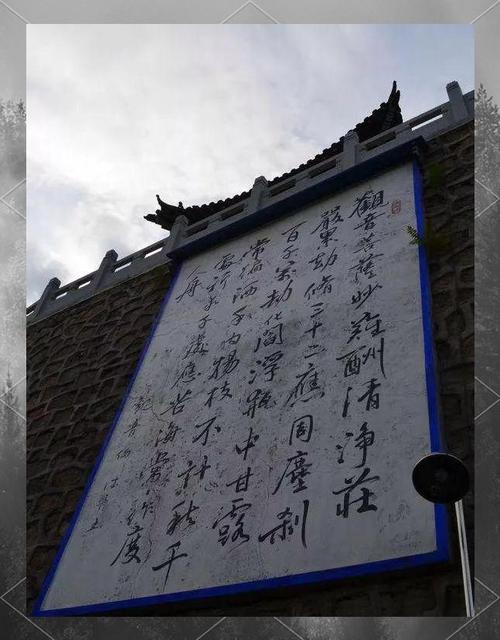 觀音菩薩妙難酬清淨莊
嚴累劫修三十二應周塵剎
百千萬劫化閻浮瓶中甘露
常徧洒手內楊枝不計秋千
處祈求千處應苦海常作度
舟
觀音偈